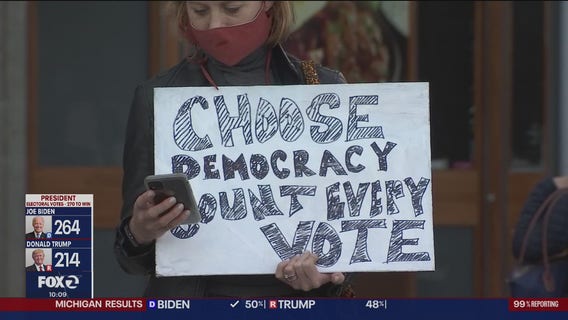 CHOOSE
DEMOCRACY
COUNT EVERY
VOTE
PRESIDENT
ELECTORAL VOTES - 270 TO WIN
JOE BIDEN
D 264
DONALD TRUMP
R 214
FOX 2
10:09
MICHIGAN RESULTS D BIDEN ✓ 50% R TRUMP 48% 99% REPORTING